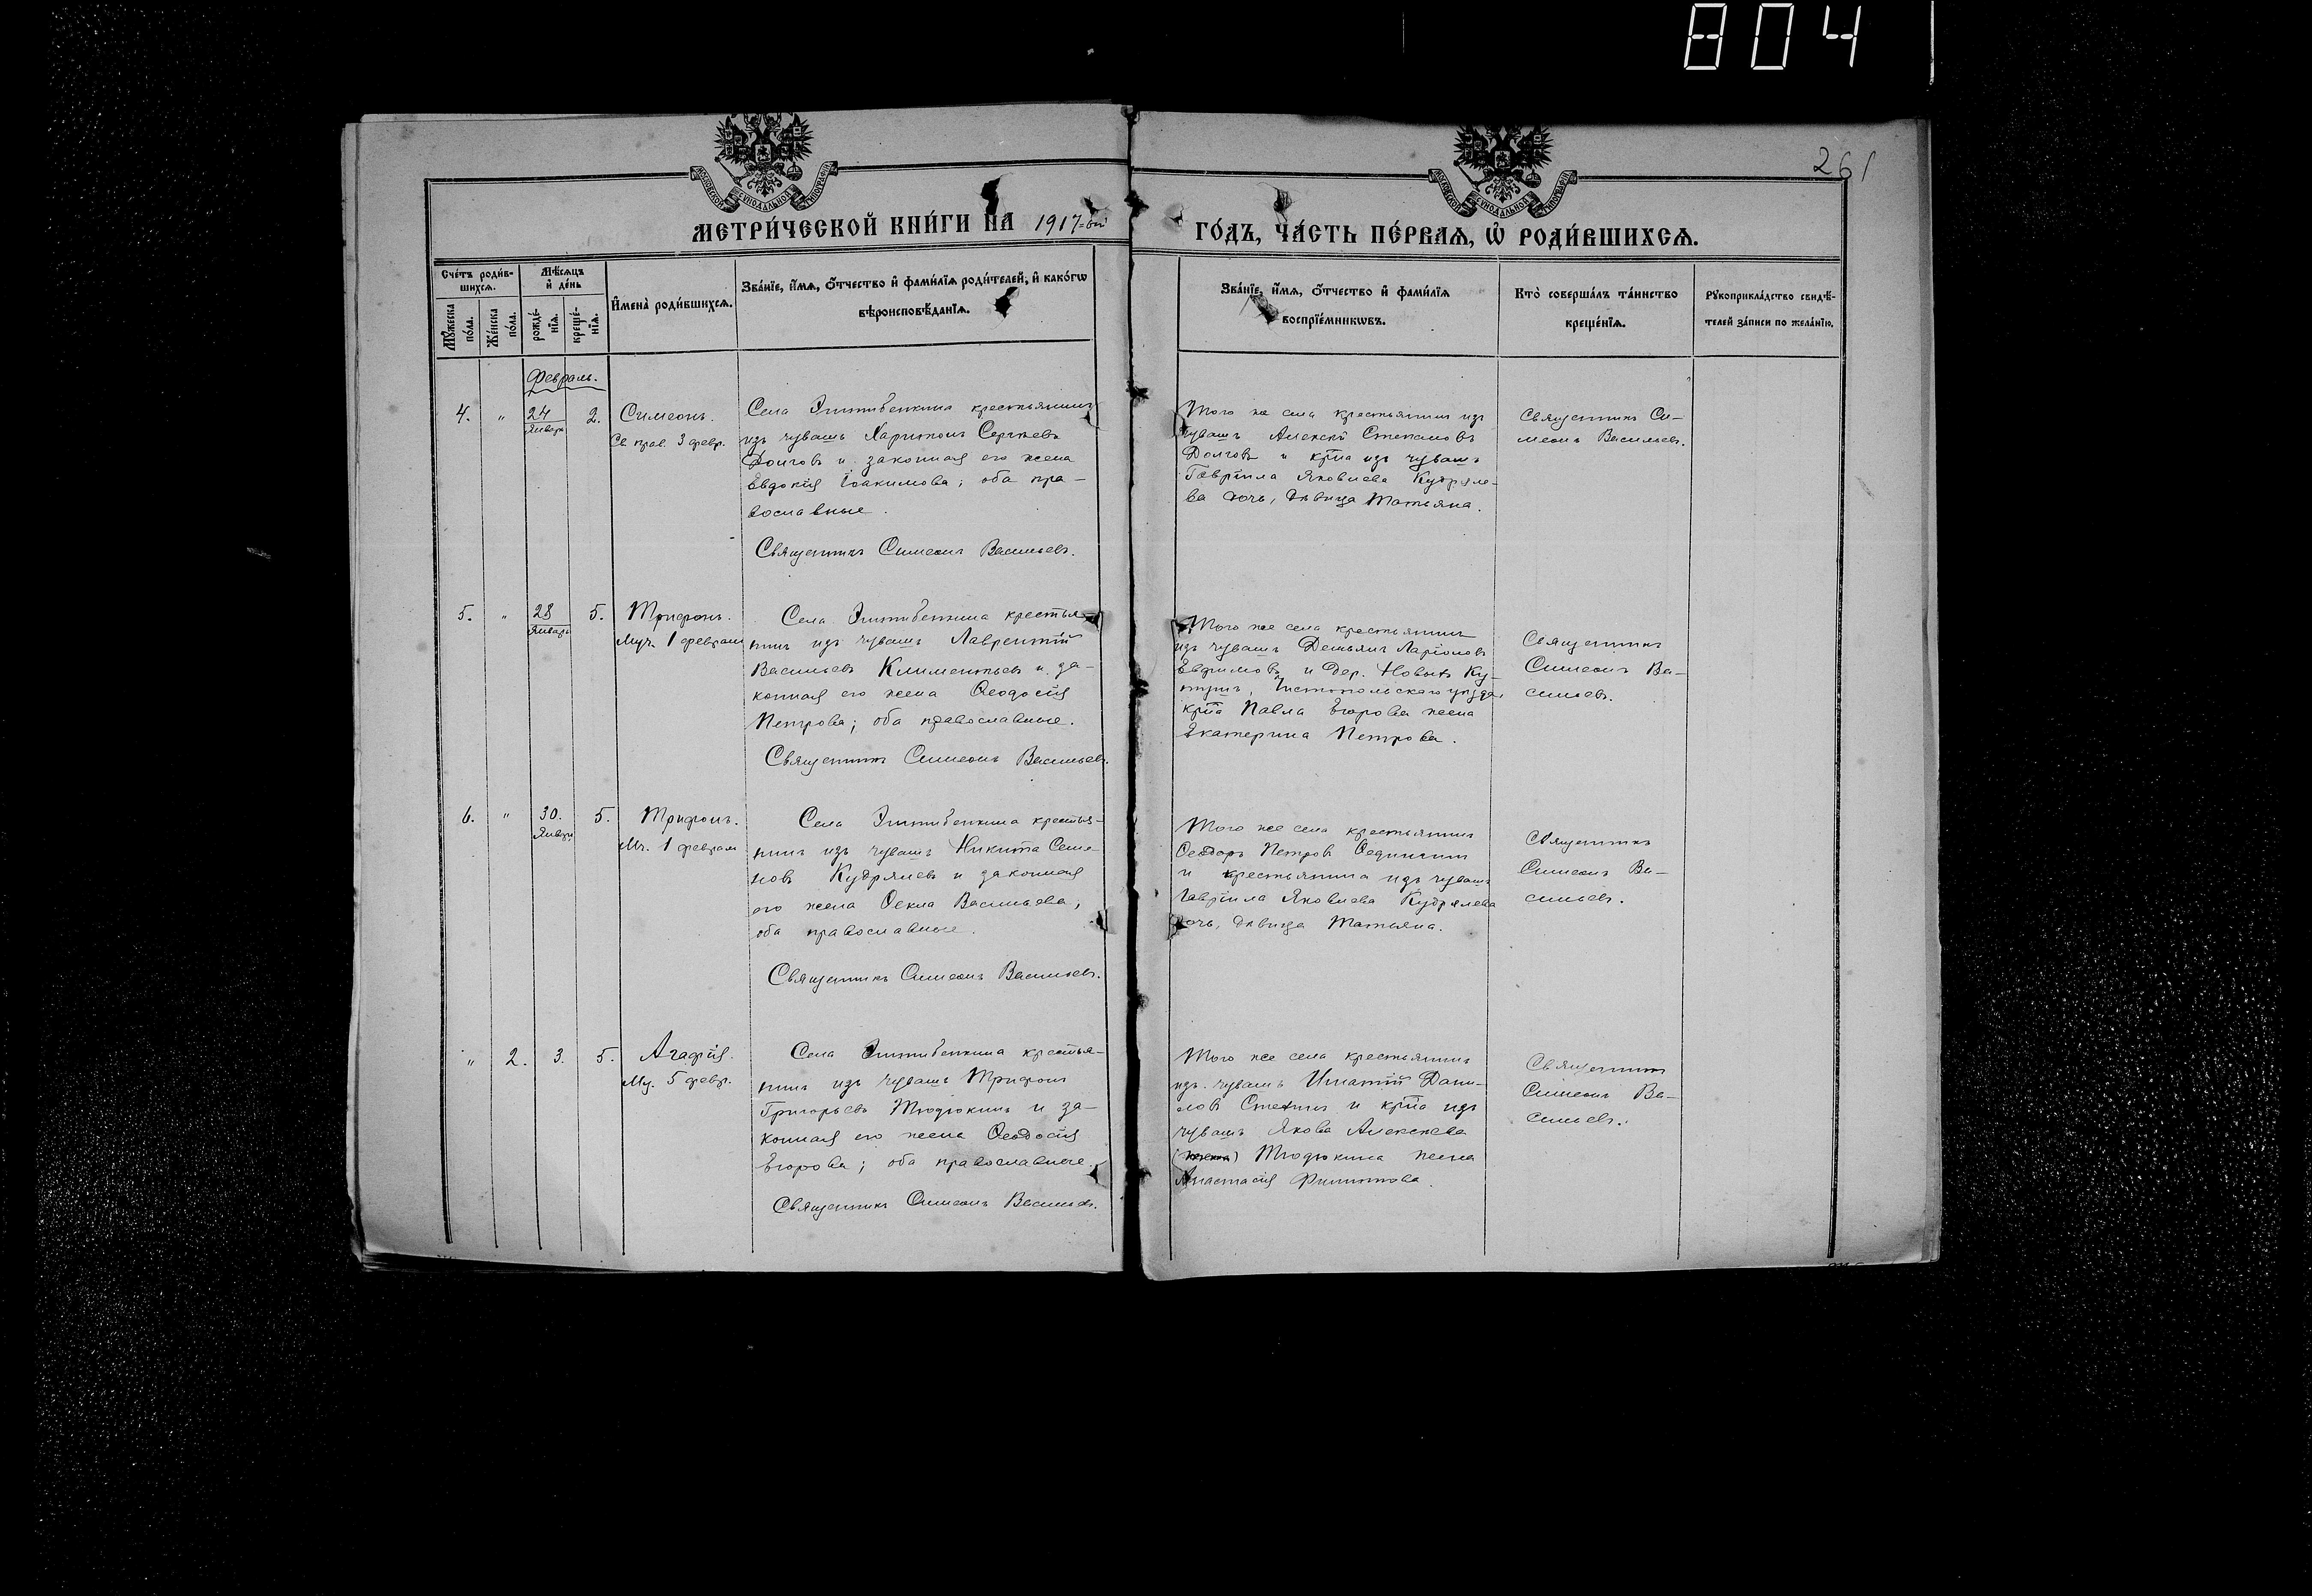 804
261
МОСКОВСКОЙ СѴНОДАЛЬНОЙ ТИПОГРАФІИ
МОСКОВСКОЙ СѴНОДАЛЬНОЙ ТИПОГРАФІИ
МЕТРИ́ЧЕСКОЙ КНИ́ГИ НА 1917-ый
ГО́ДЪ, ЧА́СТЬ ПЕ́РВАѦ, Ѡ҆ РОДИ́ВШИХСѦ.
Сче́тъ роди́в-
шихсѧ.
Мꙋ́жеска по́ла.
Же́нска по́ла.
Мѣ́сѧцъ
и҆ де́нь
рожде́-
нїѧ.
креще́-
нїѧ.
И҆мена̀ роди́вшихсѧ.
Зва́нїе, и҆́мѧ, ѻ҆́тчество и҆ фами́лїѧ роди́телей, и҆ како́гѡ
вѣроисповѣ́данїѧ.
Зва́нїе, и҆́мѧ, ѻ҆́тчество и҆ фами́лїѧ
воспрїе́мникѡвъ.
Кто̀ соверша́лъ та́инство
креще́нїѧ.
Рꙋкоприкла́дство свидѣ́-
телей за́писи по жела́нїю.
Февраль.
4. " 24 Января 2.
Симеонъ.
Св. прав. 3 февр.
Села крестьянинъ
изъ чувашъ Харитонъ Сергѣевъ
Долговъ и законная его жена
Евдокія Іоакимова; оба пра-
вославные.
Священникъ Симеонъ Васильевъ.
Того же села крестьянинъ изъ
чувашъ Алексѣй Степановъ
Долговъ и кр-на изъ чувашъ
Гавріила Яковлева Кудряле-
ва дочь, дѣвица Татьяна.
Священникъ Си-
меонъ Васильевъ.
5. " 28 Января 5.
Трифонъ.
Муч. 1 февраля
Села крестья-
нинъ изъ чувашъ Лаврентій
Васильевъ Климентьевъ и за-
конная его жена Ѳеодосія
Петрова; оба православные.
Священникъ Симеонъ Васильевъ.
Того же села крестьянинъ
изъ чувашъ Демьянъ Ларіоновъ
Евфимовъ и дер. Новыхъ Ку-
тушъ, Чистопольскаго уѣзда,
кр-на Павла Егорова жена
Екатерина Петрова.
Священникъ
Симеонъ Ва-
сильевъ.
6. " 30. Января 5.
Трифонъ.
Мч. 1 февраля
Села крестья-
нинъ изъ чувашъ Никита Семе-
новъ Кудрялевъ и законная
его жена Ѳекла Васильева,
оба православные.
Священникъ Симеонъ Васильевъ.
Того же села крестьянинъ
Ѳеодоръ Петровъ
и крестьянина изъ чувашъ
Гавріила Яковлева Кудрялева
дочь, дѣвица Татьяна.
Священникъ
Симеонъ Ва-
сильевъ.
" 2. 3. 5.
Агафія.
Му. 5 февр.
Села крестья-
нинъ изъ чувашъ Трифонъ
Григорьевъ Тюдюкинъ и за-
конная его жена Ѳеодосія
Егорова; оба православные.
Священникъ Симеонъ Васильевъ.
Того же села крестьянинъ
изъ чувашъ Игнатій Дани-
ловъ и кр-на изъ
чувашъ Якова Алексѣева
(жена) Тюдюкина жена
Анастасія Филиппова.
Священникъ
Симеонъ Ва-
сильевъ.